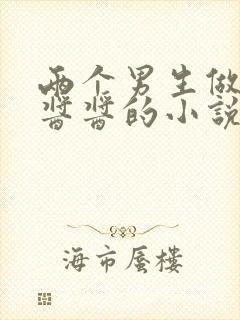 两个男生做
酱酱的小说
海市蜃楼